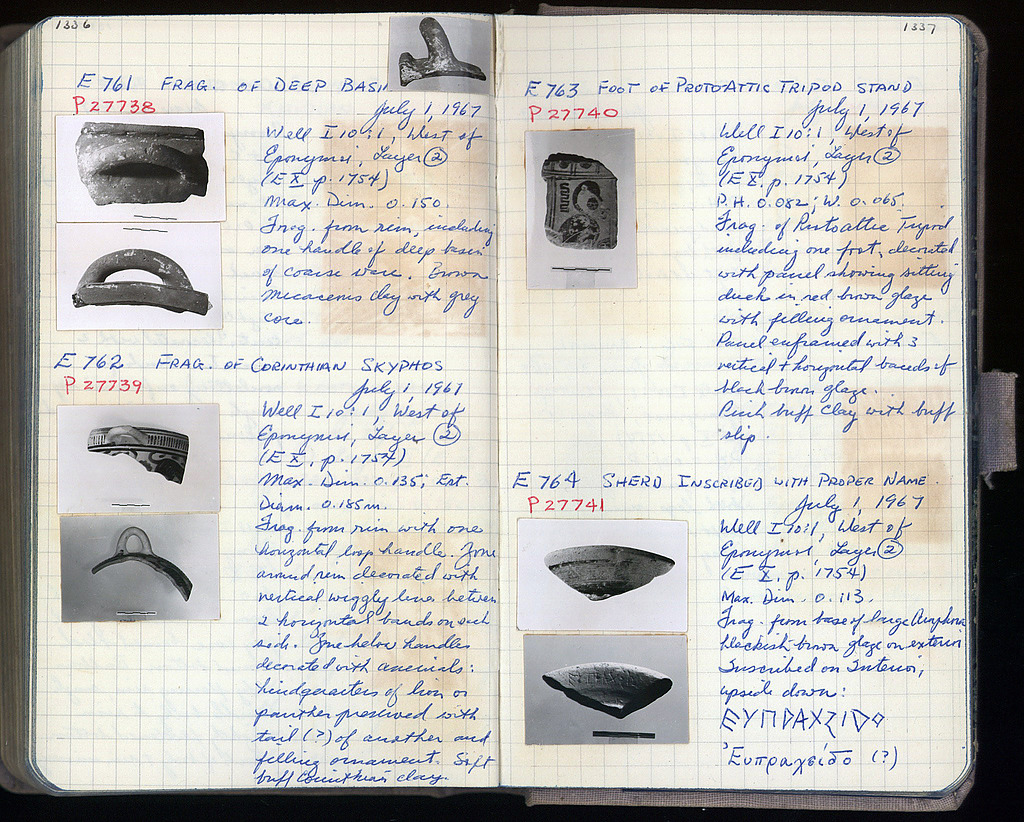 1336
E 761 FRAG. OF DEEP BASIN
P 27738
July 1, 1967
Well I 10:1, West of
Eponymoi, Layer ②
(E X, p. 1754)
Max. Dim. 0.150.
Frag. from rim, including
one handle of deep basin
of coarse ware. Brown
micaceous clay with grey
core.
E 762 FRAG. OF CORINTHIAN SKYPHOS
P 27739
July 1, 1967
Well I 10:1, West of
Eponymoi, Layer ②
(E X, p. 1754)
Max. Dim. 0.135; Est.
Diam. 0.185m.
Frag. from rim with one
horizontal loop handle. Zone
around rim decorated with
vertical wiggly lines between
2 horizontal bands on each
side. Zone below handles
decorated with animals:
hindquarters of lion or
panther preserved with
tail (?) of another and
filling ornament. Soft
buff Corinthian clay.
1337
E 763 FOOT OF PROTOATTIC TRIPOD STAND
P 27740
July 1, 1967
Well I 10:1, West of
Eponymoi, Layer ②
(E X, p. 1754)
P.H. 0.082; W. 0.065.
Frag. of Protoattic Tripod
including one foot, decorated
with panel showing sitting
duck in red brown glaze
with filling ornament.
Panel enframed with 3
vertical + horizontal bands of
black brown glaze.
Pink buff clay with buff
slip.
E 764 SHERD INSCRIBED WITH PROPER NAME.
P 27741
July 1, 1967
Well I 10:1, West of
Eponymoi, Layer ②
(E X, p. 1754)
Max. Dim. 0.113.
Frag. from base of large Amphora
blackish brown glaze on exterior
Inscribed on Interior,
upside down:
Ἐυπραχείδο (?)